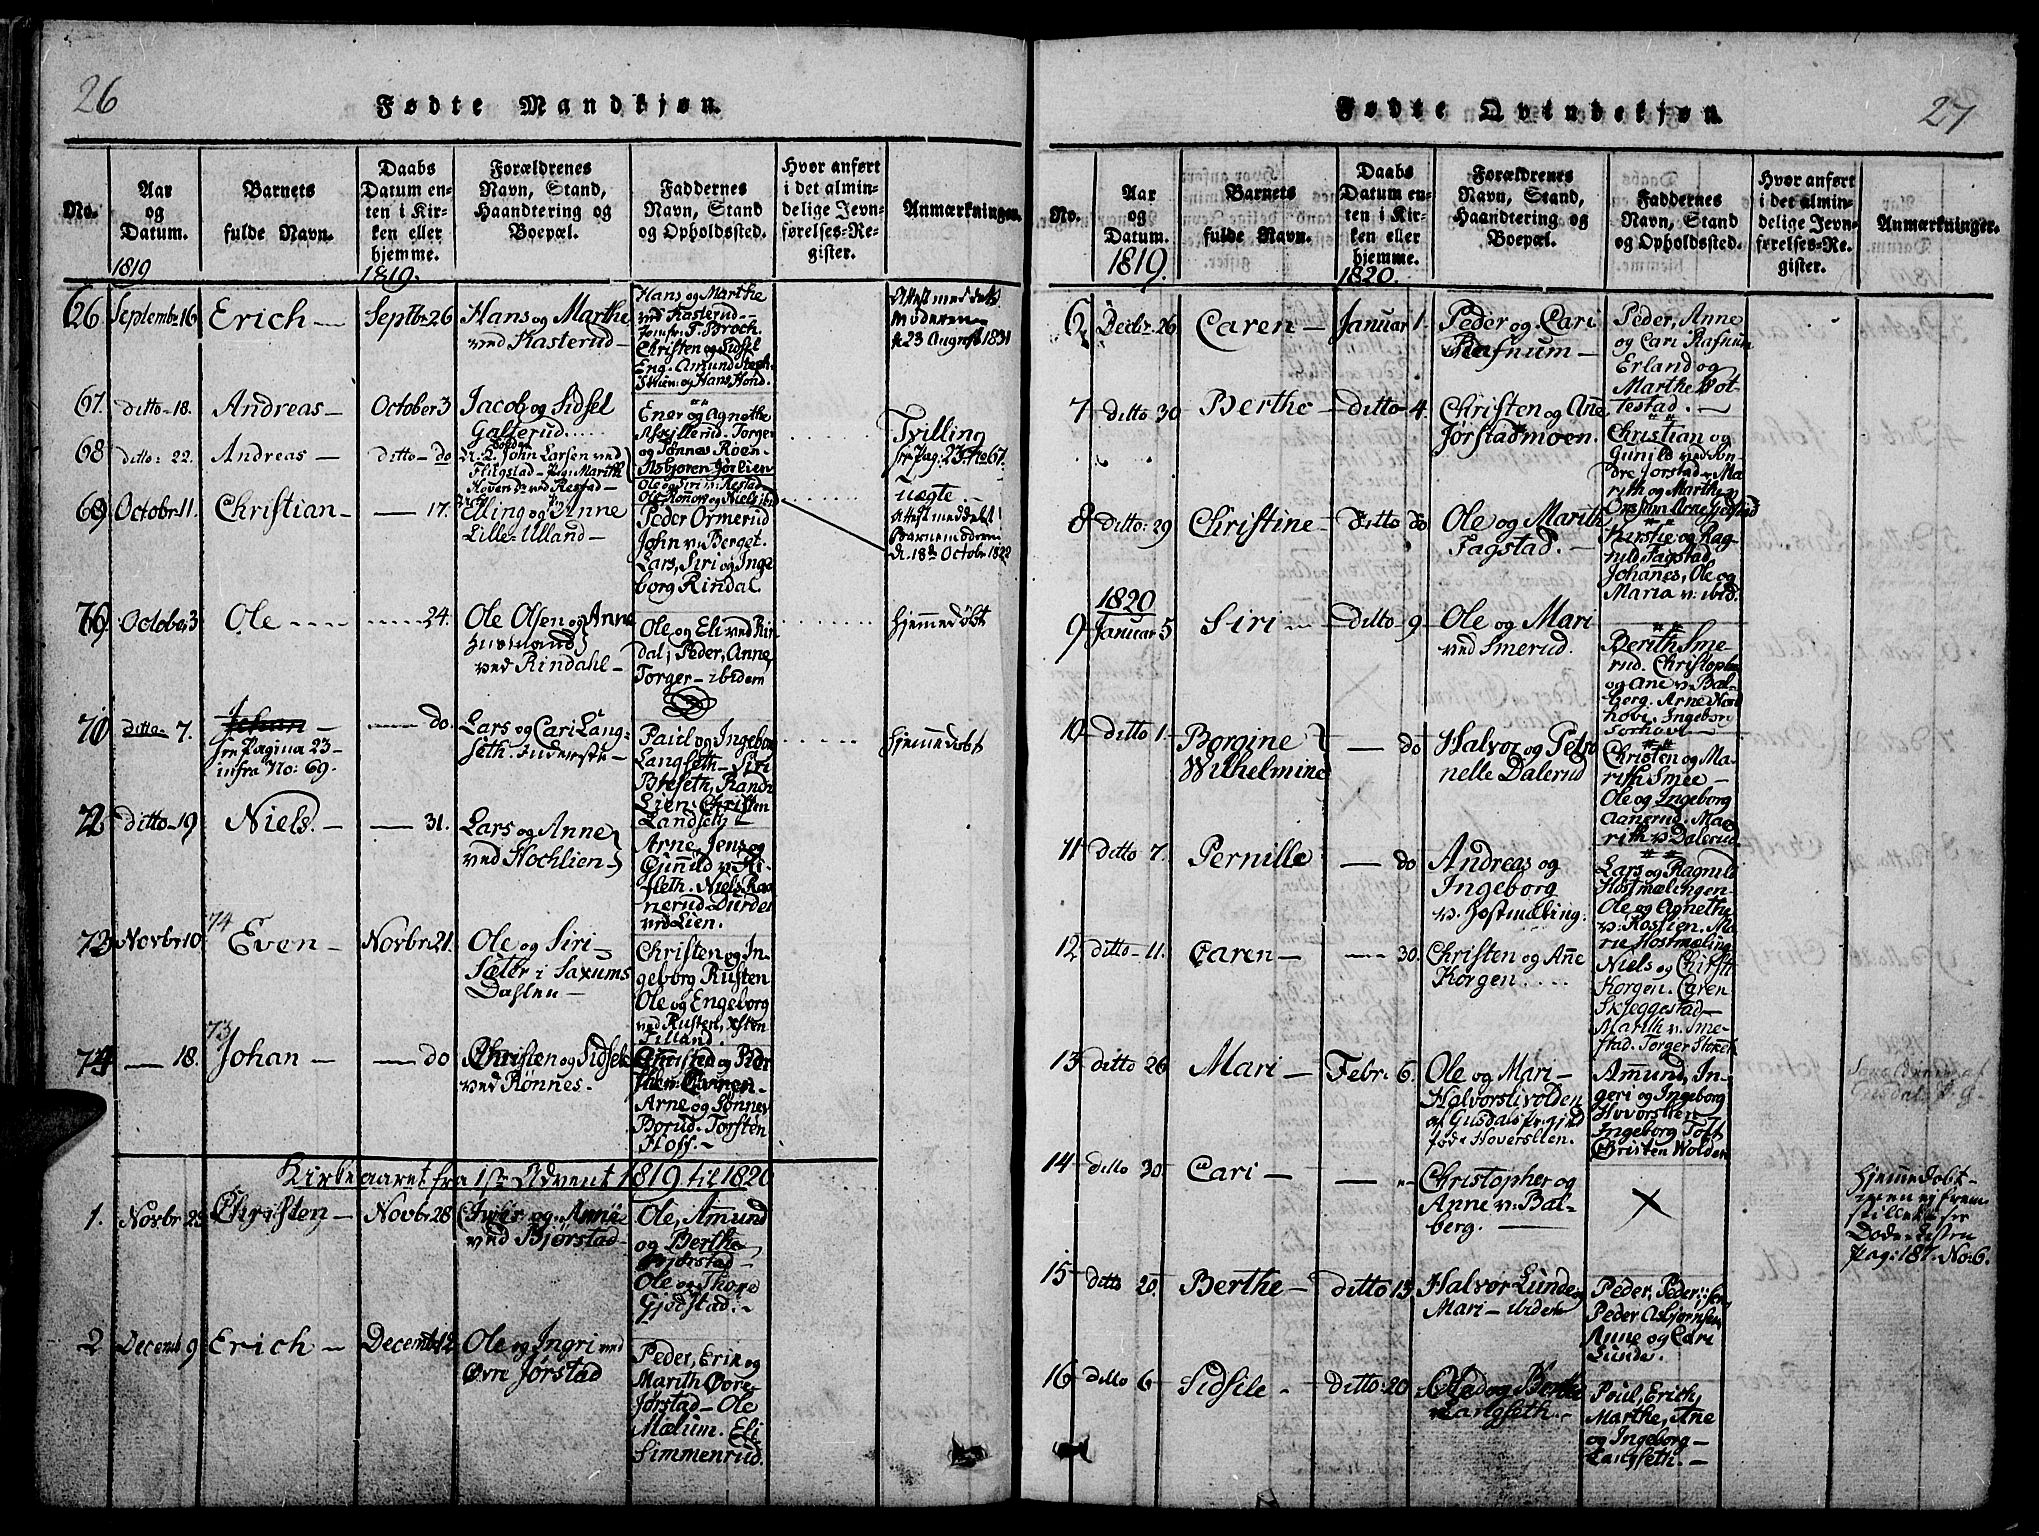 26
Fødte Mandkjøn.
No.
Aar
og
Datum.
1819
Barnets
fulde Navn.
Daabs
Datum en-
ten i Kir-
ken eller
hjemme.
1819.
Forældrenes
Navn, Stand,
Haandtering og
Boepæl.
Faddernes
Navn, Stand
og Opholdssted.
Hvor anført
i det almin-
delige Jevn-
førelses-Re-
gister.
Anmærkninger.
66. Septembr 16 Erich — Septbr 26
Hans og Marthe
ved Kasterud —
Hans og Marthe
ved Kasterud —
Jomfr. T. Broch.
Christen og Sidsel
Eng. Amund
og Hans Hond.
Attest meddelt
Moderen
d. 23 August 1831
67. ditto — 18. Andreas — October 3
Jacob og Sidsel
Galterud.
Ener og Agnethe
Askillerud. Torger
og Sønnev Roen
Asbjøren Jørlien
Tvilling
sr pag: 23. No 67.
68 ditto: 22. Andreas — ditto — do
John Larsen ved
Flugstad — Pigen Marith
ved Restad —
Ole og Siri v: Restad
Ole Konow og Niels ibid
uægte —
Attest meddelt
Barnemoderen
d. 18de Octobr 1822
69. Octobr 11. Christian — — 17.
Elling og Anne
Lille-Ulland —
Peder Ormerud
John v: Berget.
Lars, Siri og Inge
borg Rindal.
70. October 3 Ole — 24.
Ole Olsen og Anne
Huusmand
ved Rindahl —
Ole og Eli ved Rin
dal; Peder, Anne,
Torger — ibidem
Hjemmedøbt
71 ditto — 7. Johan —
sr Pagina 23 —
infra No: 69.
— do.
Lars og Cari Lang-
seth. Inderster —
Paul og Ingeborg
Langseth — Siri
Breseth, Randi
Lien. Christen
Landseth —
Hjemmedøbt
72 ditto — 19 Niels. — — 31.
Lars og Anne
ved Hochlien
Arne, Jens og
Gunild v:
Niels Rag
nerud. Durdei
ved Lien.
73 Novbr 10 74 Even — Novbr 21.
Ole og Siri —
Sæter i Saxums
Dahlen —
Christen og In-
geborg Rusten
Ole og Engeborg
ved Rusten, Xsten
Tilland.
74 — 18. 73 Johan — — do
Christen og Sidsel
ved Rønnes.
Arne og Sønnev
Borud. Torsten
Hoff. —
Kirkeaaret fra 1ste Advent 1819 til 1820
1. Novbr 23 Christen — Novbr 28
Iver og Anne
ved Bjørstad —
Ole, Amund
og Berthe
Bjørstad —
Ole og Thore
Gjødstad. —
2 Decemb 9 Erich — Decembr 12
Ole og Ingri ved
Øvre Jørstad
Peder, Erik og
Marith Øvre
Jørstad — Ole
Mælum. Eli
Simmenrud.
27
Fødte Qvindekjøn.
No.
Aar
og
Datum.
1819.
Barnets
fulde Navn.
Daabs
Datum en-
ten i Kir-
ken eller
hjemme.
1820.
Forældrenes
Navn, Stand,
Haandtering og
Boepæl.
Faddernes
Navn, Stand
og Opholdssted.
Hvor anført
i det almin-
delige Jevn-
førelses-Re-
gister.
Anmærkninger.
6 Decbr 26 Caren — Januar 1.
Peder og Cari
Rafnum —
Peder, Anne
og Cari Rafnum
Erland og
Marthe Bot-
testad. —
7 ditto 30 Berthe — ditto 4.
Christen og Ane
Jørstadmoen.
Christian og
Gunild ved Søn-
dre Jørstad. Ma
rith og Marthe
8 ditto: 29 Christine — ditto do
Ole og Marith
Fagstad. —
Kirstie og Rag
nild Fagstad
Johanes, Ole og
Maria v: ibid.
1820
9 Januar 5 Siri — ditto 9
Ole og Mari
ved Smerud.
Berith Sme
rud. Christopher
og Ane v: Bal-
berg. Arne Nord
hovi. Ingeborg
Sorhovi —
10 ditto 1. Borgine
Wilhelmine
— do
Halvor og Petro
nelle Dalerud
Christen og Ma-
rith Smee —
Ole og Ingeborg
Aanerud. Ma
rith v: Dalerud
11 ditto 7. Pernille — do
Andreas og
Ingeborg
v. Jostmæling.
Lars og Ragnild
Hostmælingen
Ole og Agnethe
v: Rostien. Ma
rie Hostmæling
12 ditto — 11. Caren — — 30.
Christen og Ane
Korgen
Niels og Christ
Korgen. Caren
Skjeggestad —
Marith v: Sme-
stad. Torger
13 ditto 26 Mari — Febr. 6.
Ole og Mari —
Halvorslivolden
af Gusdals Pr:gjeld
fød. Hoverslien.
Amund, In-
geri og Ingeborg
Hovorslien
Ingeborg Toft
Christen Wolden
Gusdals P. g.
14 ditto 30 Cari — — "
Christopher og
Anne v: Bal-
berg. —
Hjemmedøbt —
men ej frem
stillet sr
Døde-Listen
Pag: 187. No: 6.
15 ditto 20. Berthe — ditto 13.
Halvor Lunde og
Mari — ibidem
Peder, Peder
Peder Asbjørnsen
Anne og Cari
Lunde.
16 ditto 6 Sidsele — ditto: 20
og Berthe
Langseth. —
Poul, Erich,
Marthe, Ane
og Ingeborg —
Langseth. —